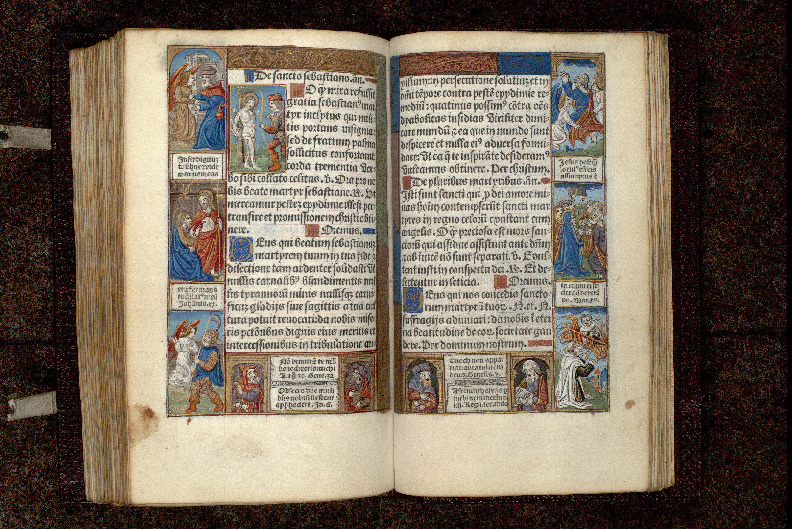 De sancto sebastiano. añ.
O q̃ mira refulsit
gratia sebastian⁹ mar
tyr inclytus qui mili
tis portans insignia:
sed de fratrum palma
sollicitus confortauit
corda trementia ver
bo sibi collato celitus. v. Ora pro no
bis beate martyr sebastiane. R. Vt
mereamur pestẽ epydimie illesi per
transire et promissionem christi obti
nere. Oremus.
Deus qui beatum sebastianũ
martyrem tuum in tua fide ⁊
dilectione tam ardenter solidasti vt
nullis carnalib⁹ blandimentis nul
lis tyrannorũ minis nullisq̃ carni
ficũ gladiis siue sagittis a tua cul
tura potuit reuocari: da nobis mise
ris petõribus dignis eius meritis et
intercessionibus in tribulatione au
xilium: in persecutione solatiũ: et in
om̃i tẽpore contra pestẽ epydimie re
mediũ: quatinus possim⁹ cõtra oẽs
dyabolicas insidias viriliter dimi
care mundũ ⁊ ea que in mundo sunt
despicere et nulla ei⁹ aduersa formi
dare: vt ea q̃ te inspirãte desideram⁹
valeamus obtinere. Per christum.
De pluribus martyribus. añ.
Isti sunt sancti qui p̱ dei amore mi
nas hoĩm contempserũt sancti mar
tyres in regno celorũ exultant cum
angelis. O q̃ preciosa est mors san
ctorũ qui assidue assistunt añ dñm
⁊ ab inuicẽ nõ sunt separati. v. Exul
tent iusti in conspectu dei. R. Et de
lectentur in leticia. Oremus.
Deus qui nos concedis sancto
rum martyrũ tuorũ .N. et .N.
suffragiis adiuuari: da nobis ĩ eter
na beatitudine de eorũ societate gau
dere. Per dominum nostrum.